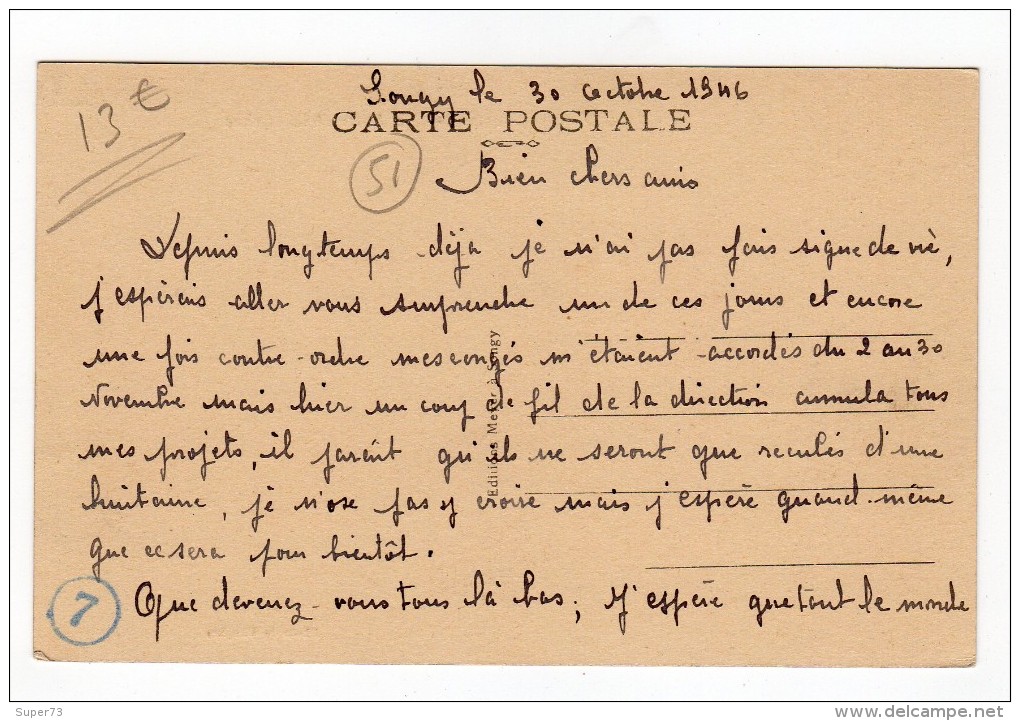 13 €
Songy le 30 Octobre 1946
CARTE POSTALE
51
Bien chers amis
Depuis longtemps déja je n'ai pas fais signe de vie,
j'espérais aller vous surprendre un de ces jours et encore
une fois contre-ordre mes congés m'étaient accordés du 2 au 30
Novembre mais hier un coup de fil de la direction annula tous
mes projets, il parait qu'ils ne seront que reculés d'une
huitaine, je n'ose pas y croire mais j'espère quand-même
que ce sera pour bientôt.
Que devenez-vous tous là bas; J'espère que tout le monde
7
Editions Meyer à Songy
Super73
delcampe.net